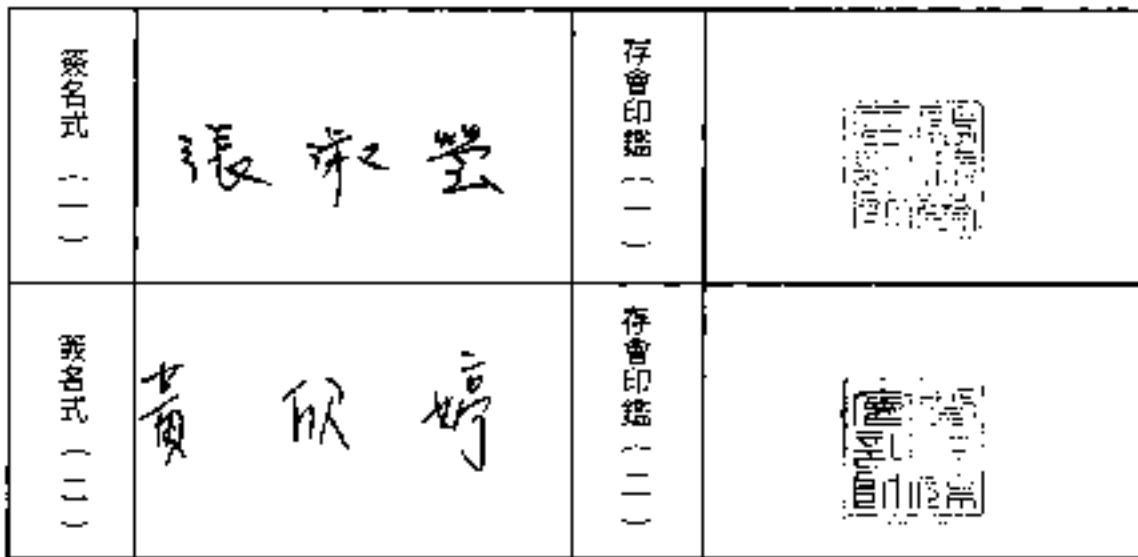 簽名式（一）
張淑瑩
存會印鑑（一）
簽名式（二）
黃欣婷
存會印鑑（二）